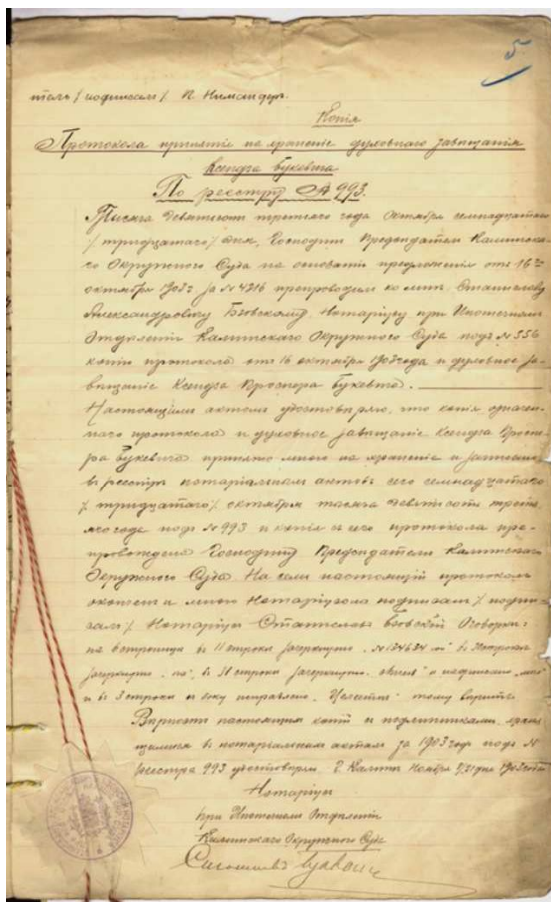 5
тель /подписал/ П. Нимандръ.
Копія
Протокола принятія на храненіе духовнаго завѣщанія
Ксендза Букевича
По реестру № 993.
Тысяча девятьсотъ третьяго года Октября семнадцатаго
/тридцатаго/ дня, Господинъ Предсѣдатель Калишска-
го Окружнаго Суда на основаніи предложенія отъ 16го
октября 1903 г. за № 4216 препроводилъ ко мнѣ, Станиславу
Александровичу Бзовскому, Нотаріусу при Ипотечномъ
Отдѣленіи Калишскаго Окружнаго Суда подъ № 356
копію протокола отъ 16 октября 1903 года и духовное за-
вѣщаніе Ксендза Проспера Букевича.
Настоящимъ актомъ удостовѣряю, что копія означен-
наго протокола и духовное завѣщаніе Ксендза Проспе-
ра Букевича принято мною на храненіе и записано
въ реестръ нотаріальныхъ актовъ сего семнадцатаго
/тридцатаго/ октября тысяча девятьсотъ треть-
яго года подъ № 993 и копія съ сего протокола пре-
провождена Господину Предсѣдателю Калишскаго
Окружнаго Суда. На семъ настоящій протоколъ
оконченъ и мною Нотаріусомъ подписанъ /подпи-
салъ/ Нотаріусъ Станиславъ Бзовскій. Оговорка:
на странице въ 11 строкѣ зачеркнуто
зачеркнуто въ 31 строкѣ зачеркнуто и надписано
и въ 3 строкѣ съ боку поправлено тому вѣрить.
Вѣрность настоящей копіи съ подлинникомъ, хран-
щимся въ нотаріальныхъ актахъ за 1903 годъ подъ №
реестра 993 удостовѣряю. Г. Калишъ Ноября дня 1903 года
Нотаріусъ
при Ипотечномъ Отдѣленіи
Калишскаго Окружнаго Суда